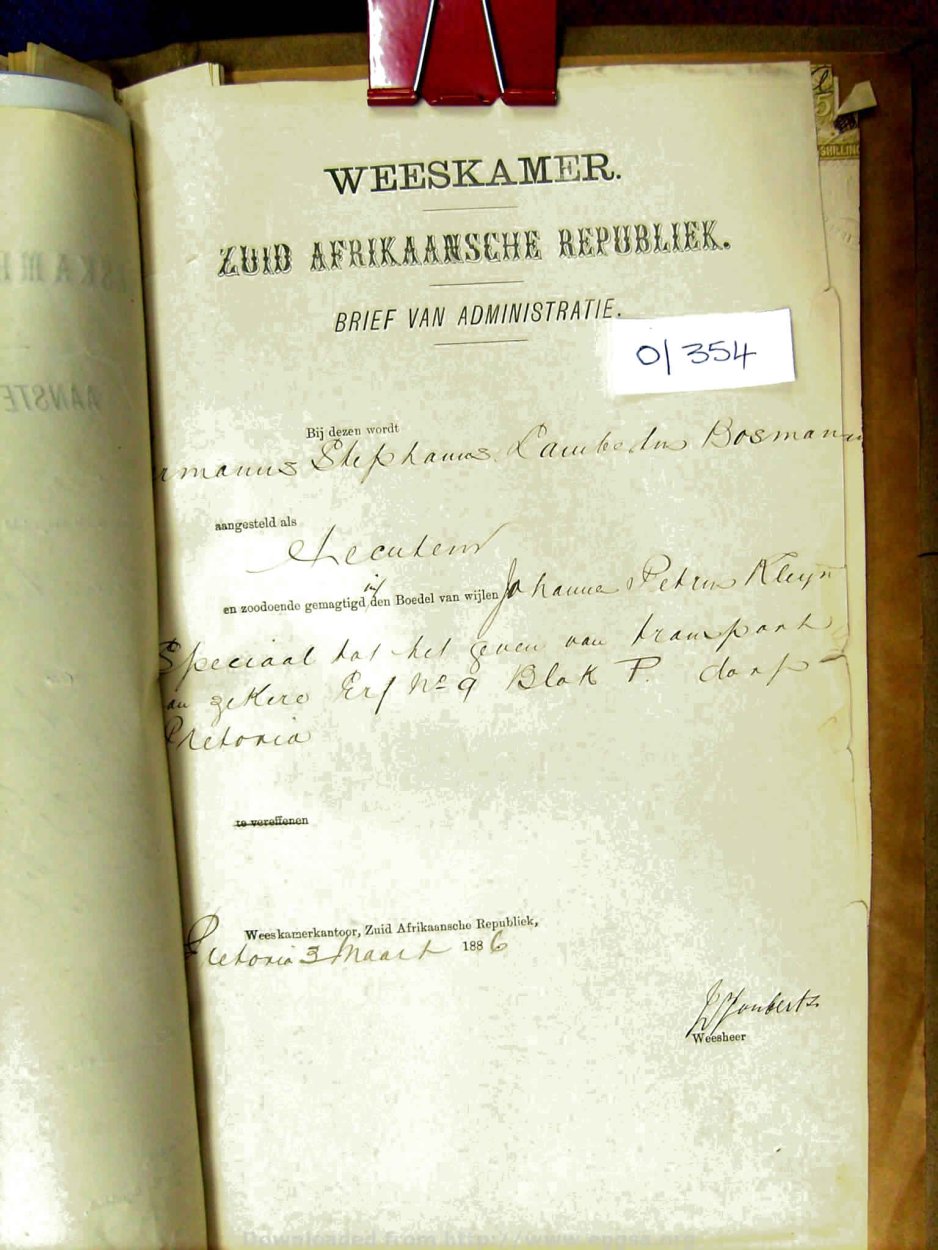 WEESKAMER.
ZUID AFRIKAANSCHE REPUBLIEK.
BRIEF VAN ADMINISTRATIE.
0/354
5
SHILLING
Bij dezen wordt
rmanus Stephanus Lambertus Bosman
aangesteld als
Executeur
en zoodoende gemagtigd in den Boedel van wijlen Johannes Petrus Kleyn
Speciaal tot het geven van transport
van zekere Erf No 9 Blok P. dorp
Pretoria
te vereffenen
Weeskamerkantoor, Zuid Afrikaansche Republiek,
Pretoria 3 Maart 1886
Joubert
Weesheer
Downloaded from http://www.eggsa.org